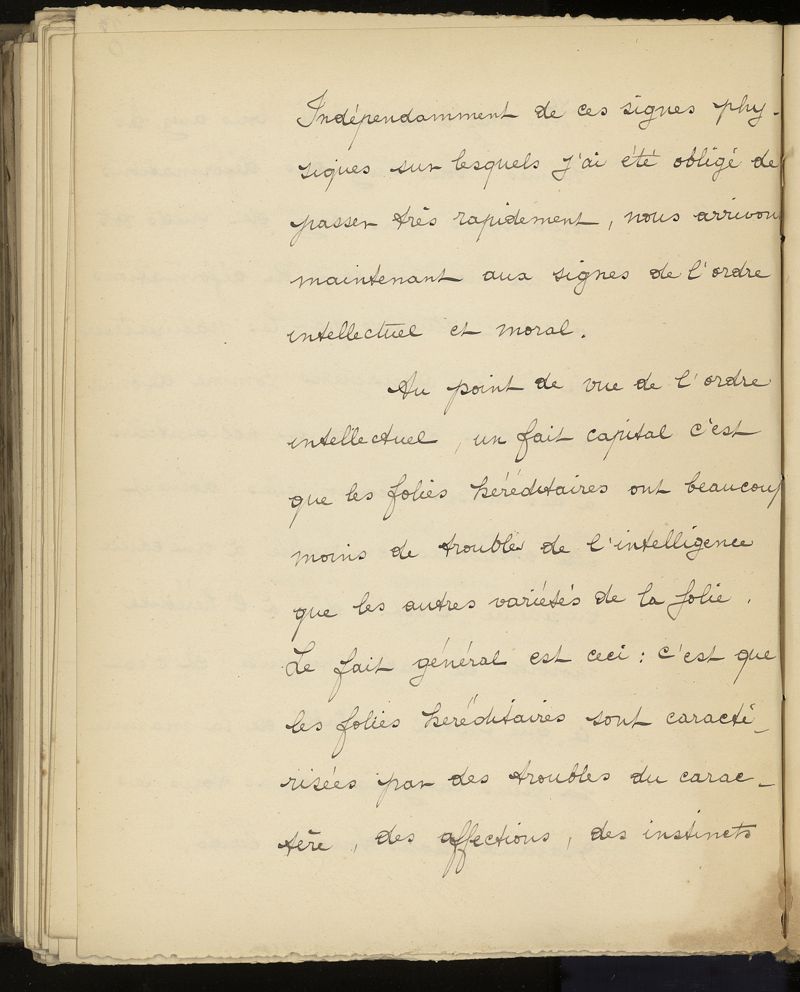 Indépendamment de ces signes phy-
siques sur lesquels j'ai été obligé de
passer très rapidement, nous arrivon
maintenant aux signes de l'ordre
intellectuel et moral.
Au point de vue de l'ordre
intellectuel, un fait capital c'est
que les folies héréditaires ont beaucoup
moins de trouble de l'intelligence
que les autres variétés de la folie.
Le fait général est ceci : c'est que
les folies heréditaires sont caracté-
risées par des troubles du carac-
tère, des affections, des instincts